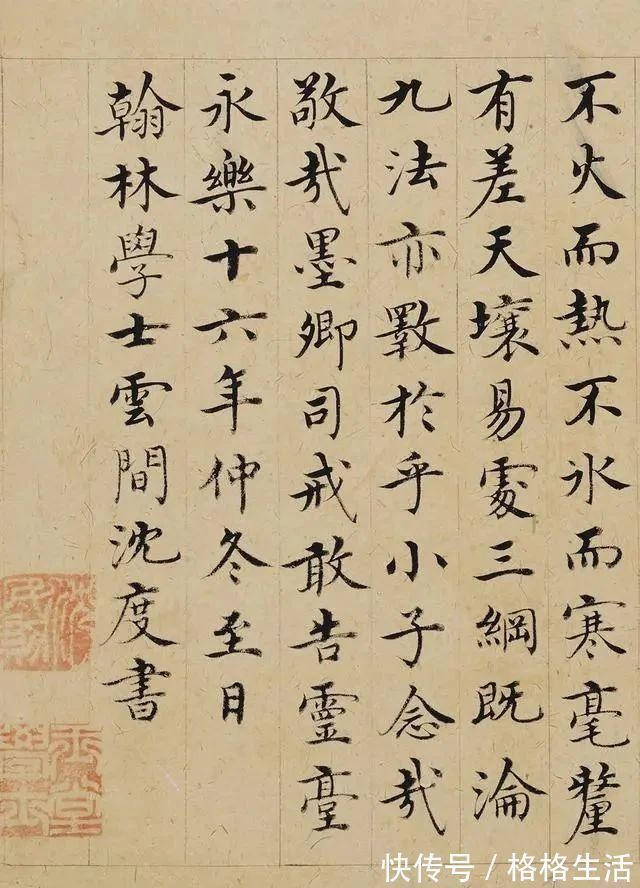 不火而熱不氷而寒毫釐
有差天壤易處三綱既淪
九法亦斁於乎小子念哉
敬哉墨卿司戒敢告靈臺
永樂十六年仲冬至日
翰林學士雲間沈度書
快传号/格格生活